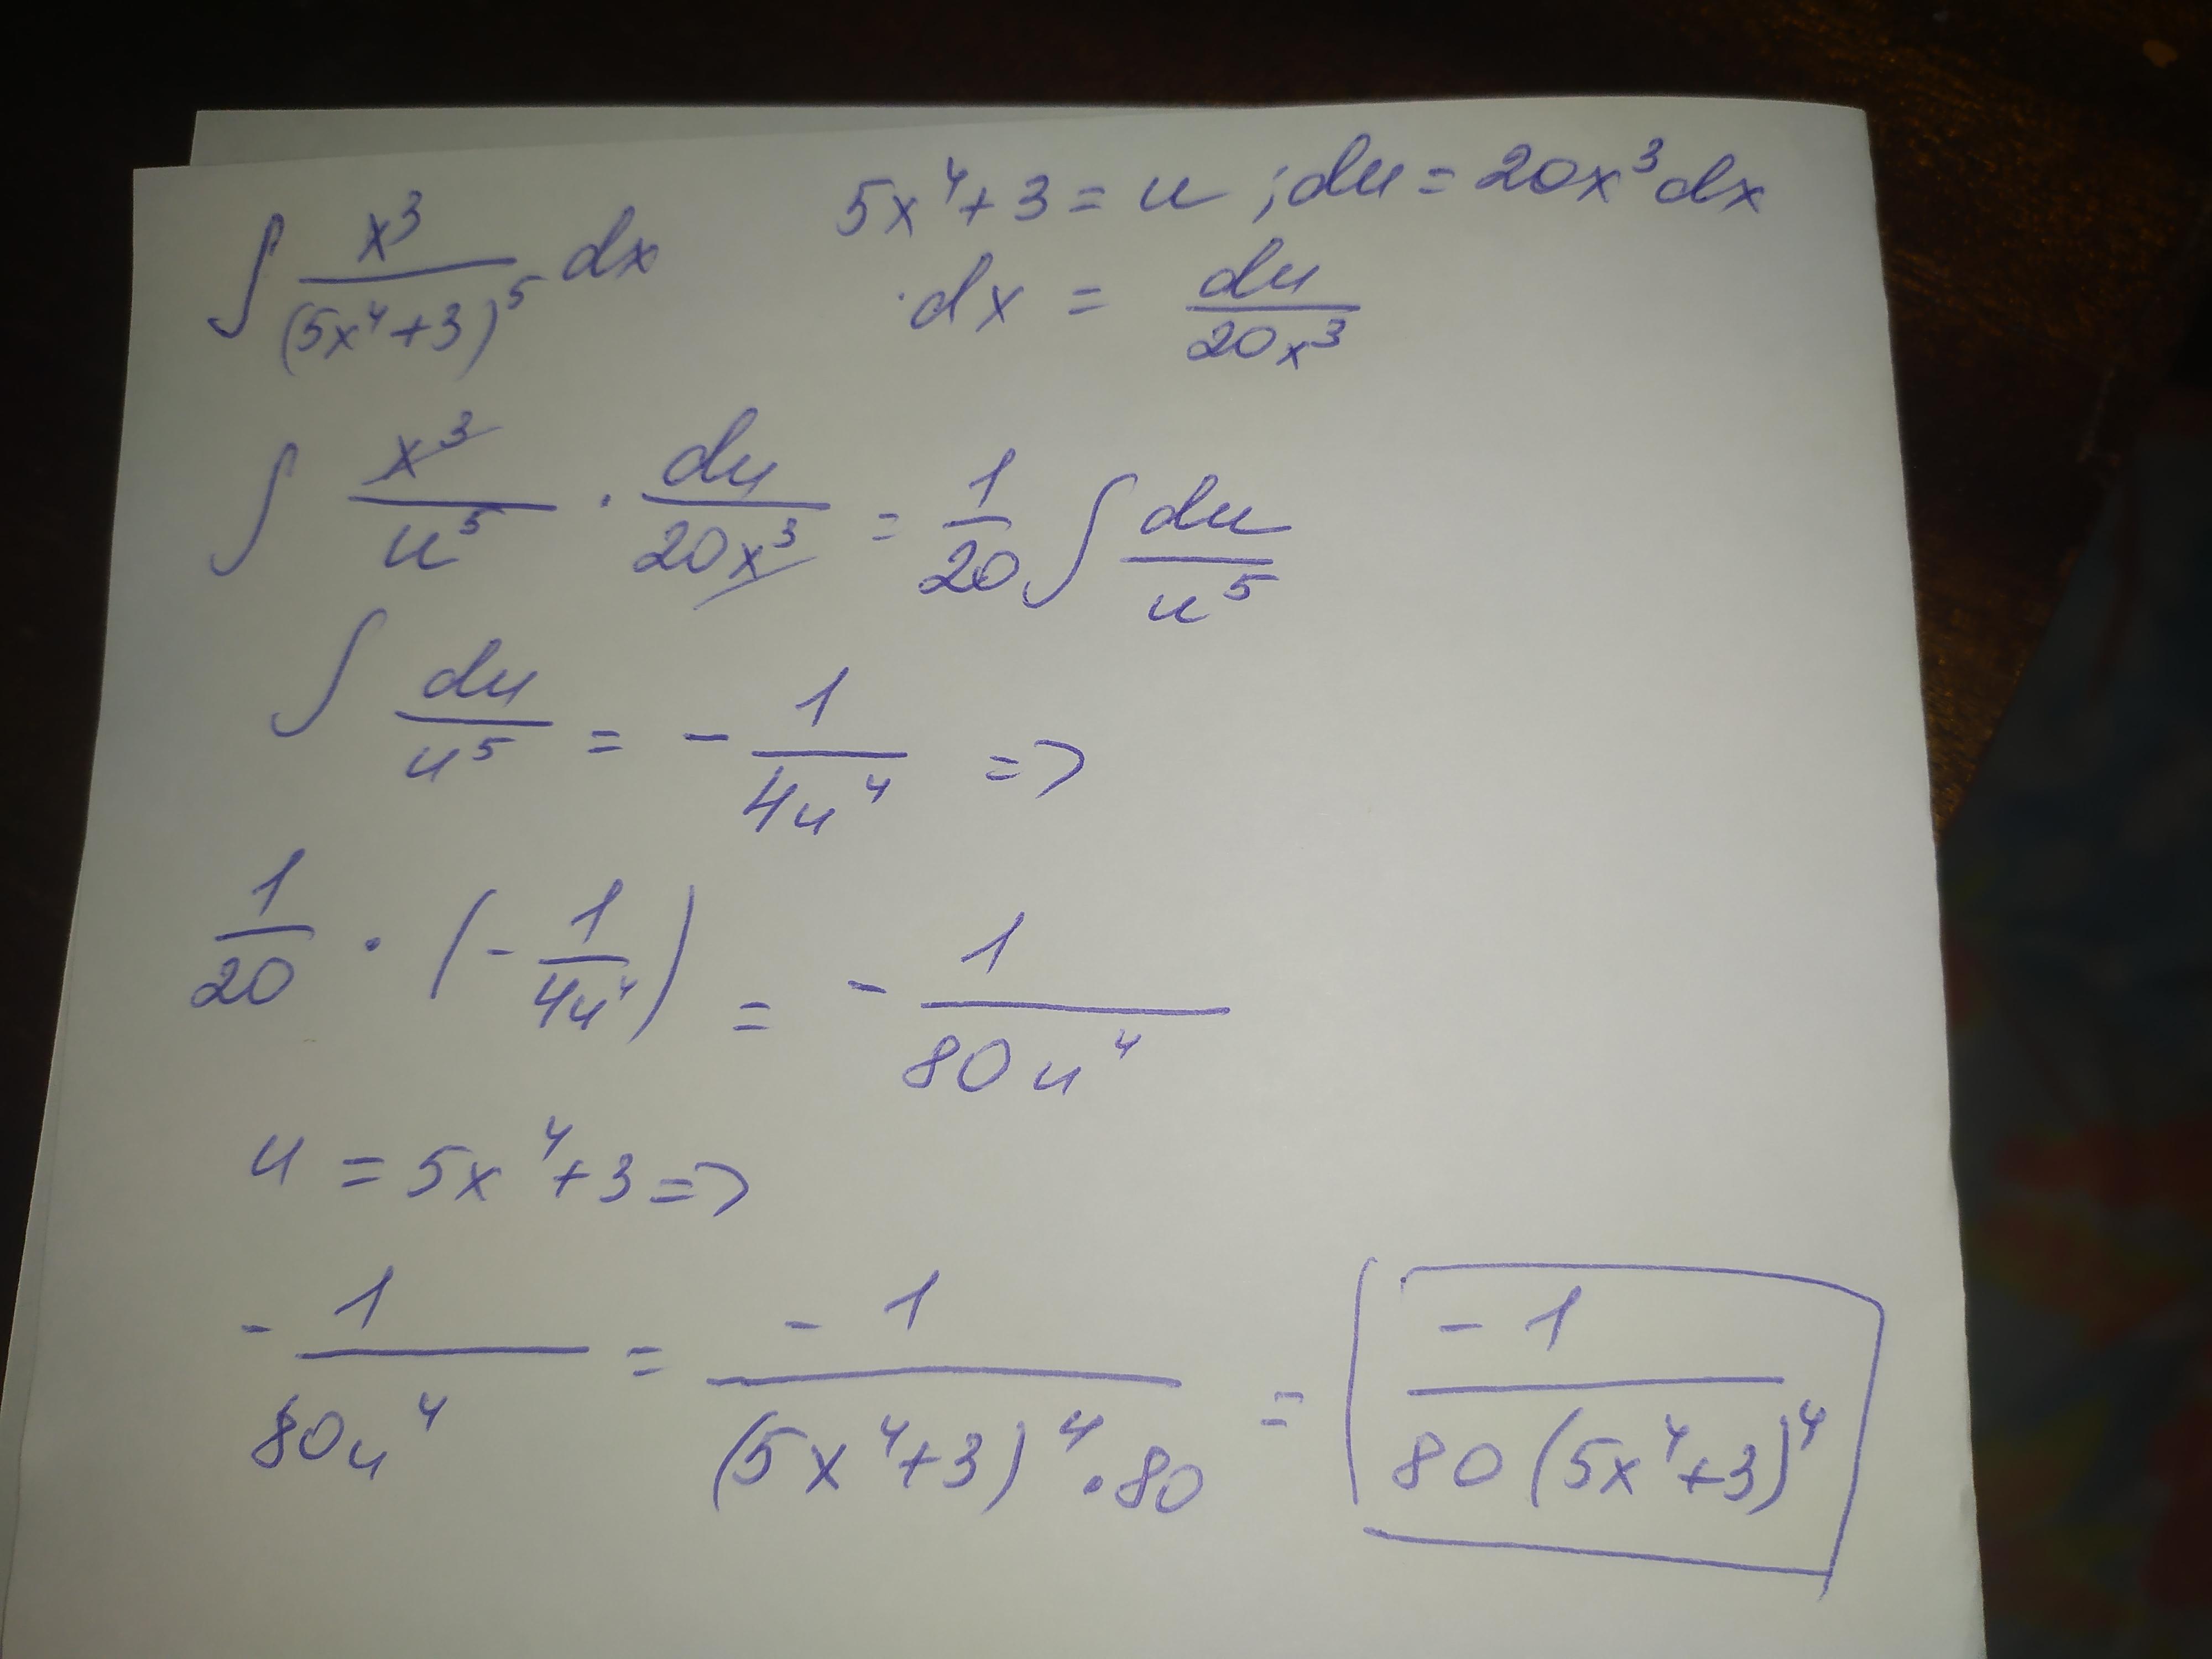 ∫ x³/(5x⁴+3)⁵ dx    5x⁴+3 = u ; du = 20x³dx
· dx = du/20x³
∫ x³/u⁵ · du/20x³ = 1/20 ∫ du/u⁵
∫ du/u⁵ = - 1/4u⁴ =>
1/20 · (- 1/4u⁴) = - 1/80u⁴
u = 5x⁴+3 =>
- 1/80u⁴ = -1/(5x⁴+3)⁴·80 = -1/80(5x⁴+3)⁴